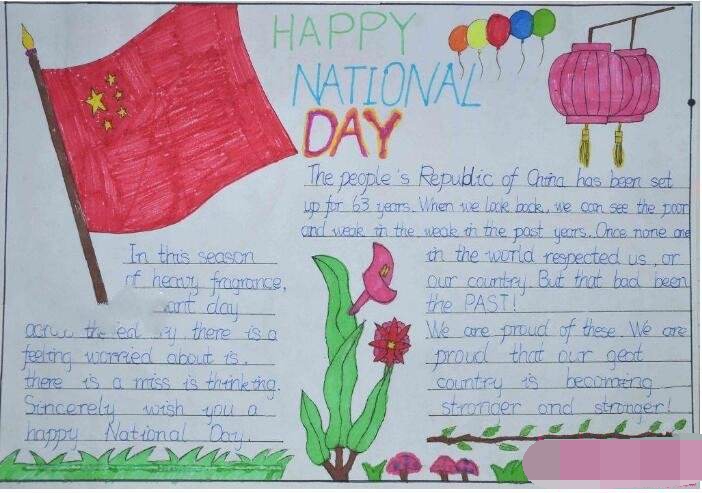 HAPPY
NATIONAL
DAY
The people's Republic of China has been set
up for 63 years. When we look back, we can see the poor
and weak in the weak in the past years. Once none one
in the world respected us, or
our country. But that bad been
the PAST!
We are proud of these. We are
proud that our geat
country is becoming
stronger and stronger!
In this season
of heavy fragrance,
day
there is a
feeling worried about is.
there is a miss is thinking.
Sincerely wish you a
happy National Day.